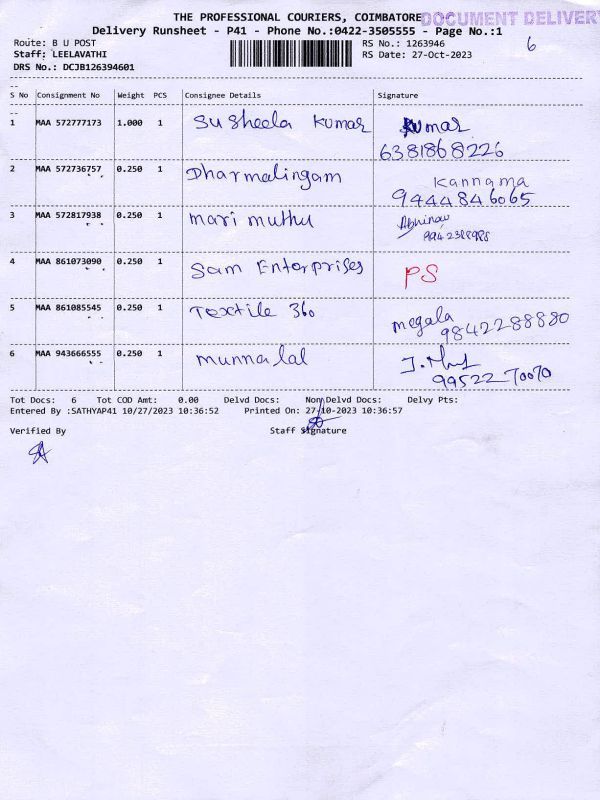 THE PROFESSIONAL COURIERS, COIMBATORE
DOCUMENT DELIVERY
Delivery Runsheet - P41 - Phone No.:0422-3505555 - Page No.:1
Route: B U POST
RS No.: 1263946
6
Staff: LEELAVATHI
RS Date: 27-Oct-2023
DRS No.: DCJB126394601
S No Consignment No Weight PCS Consignee Details Signature
1 MAA 572777173 1.000 1 Susheela Kumar Kumar
6381868226
2 MAA 572736757 0.250 1 Dharmalingam Kannama
9444846065
3 MAA 572817938 0.250 1 mari muthu Abhinav
4 MAA 861073090 0.250 1 Sam Enterprises PS
5 MAA 861085545 0.250 1 Textile 360 megala
9842288880
6 MAA 943666555 0.250 1 munna lal
99522 70070
Tot Docs: 6 Tot COD Amt: 0.00 Delvd Docs: Non Delvd Docs: Delvy Pts:
Entered By :SATHYAP41 10/27/2023 10:36:52 Printed On: 27-10-2023 10:36:57
Verified By Staff Signature